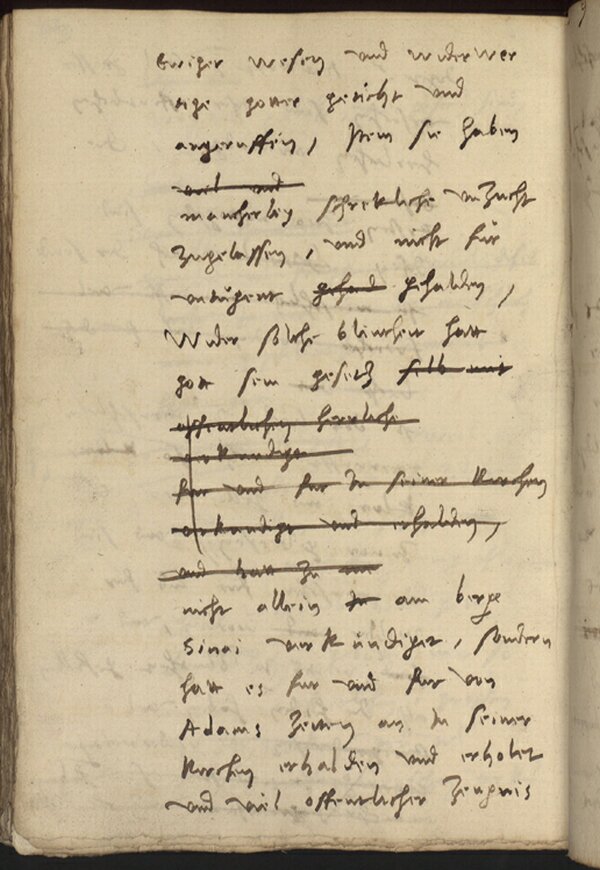 ewiger wesen und widerwer
tige gotter geticht und
angeruffen, Item sie haben
viel und
mancherley schrekliche unzucht
zugelassen, und nicht fur
untugent gehad gehalden,
Wider solche blintheit hatt
gott sein gesetz selb mit
offentlichen herrliche
verkundige
fur und fur in seiner kirchen
verkundigt und erhalden,
und hatt zu
nicht allein in am berge
Sinai verkündiget, sondern
hatt es fur und fur von
Adams Zeiten an in seiner
Kirchen erhalden und erholet
und viel offentlicher Zeugnis